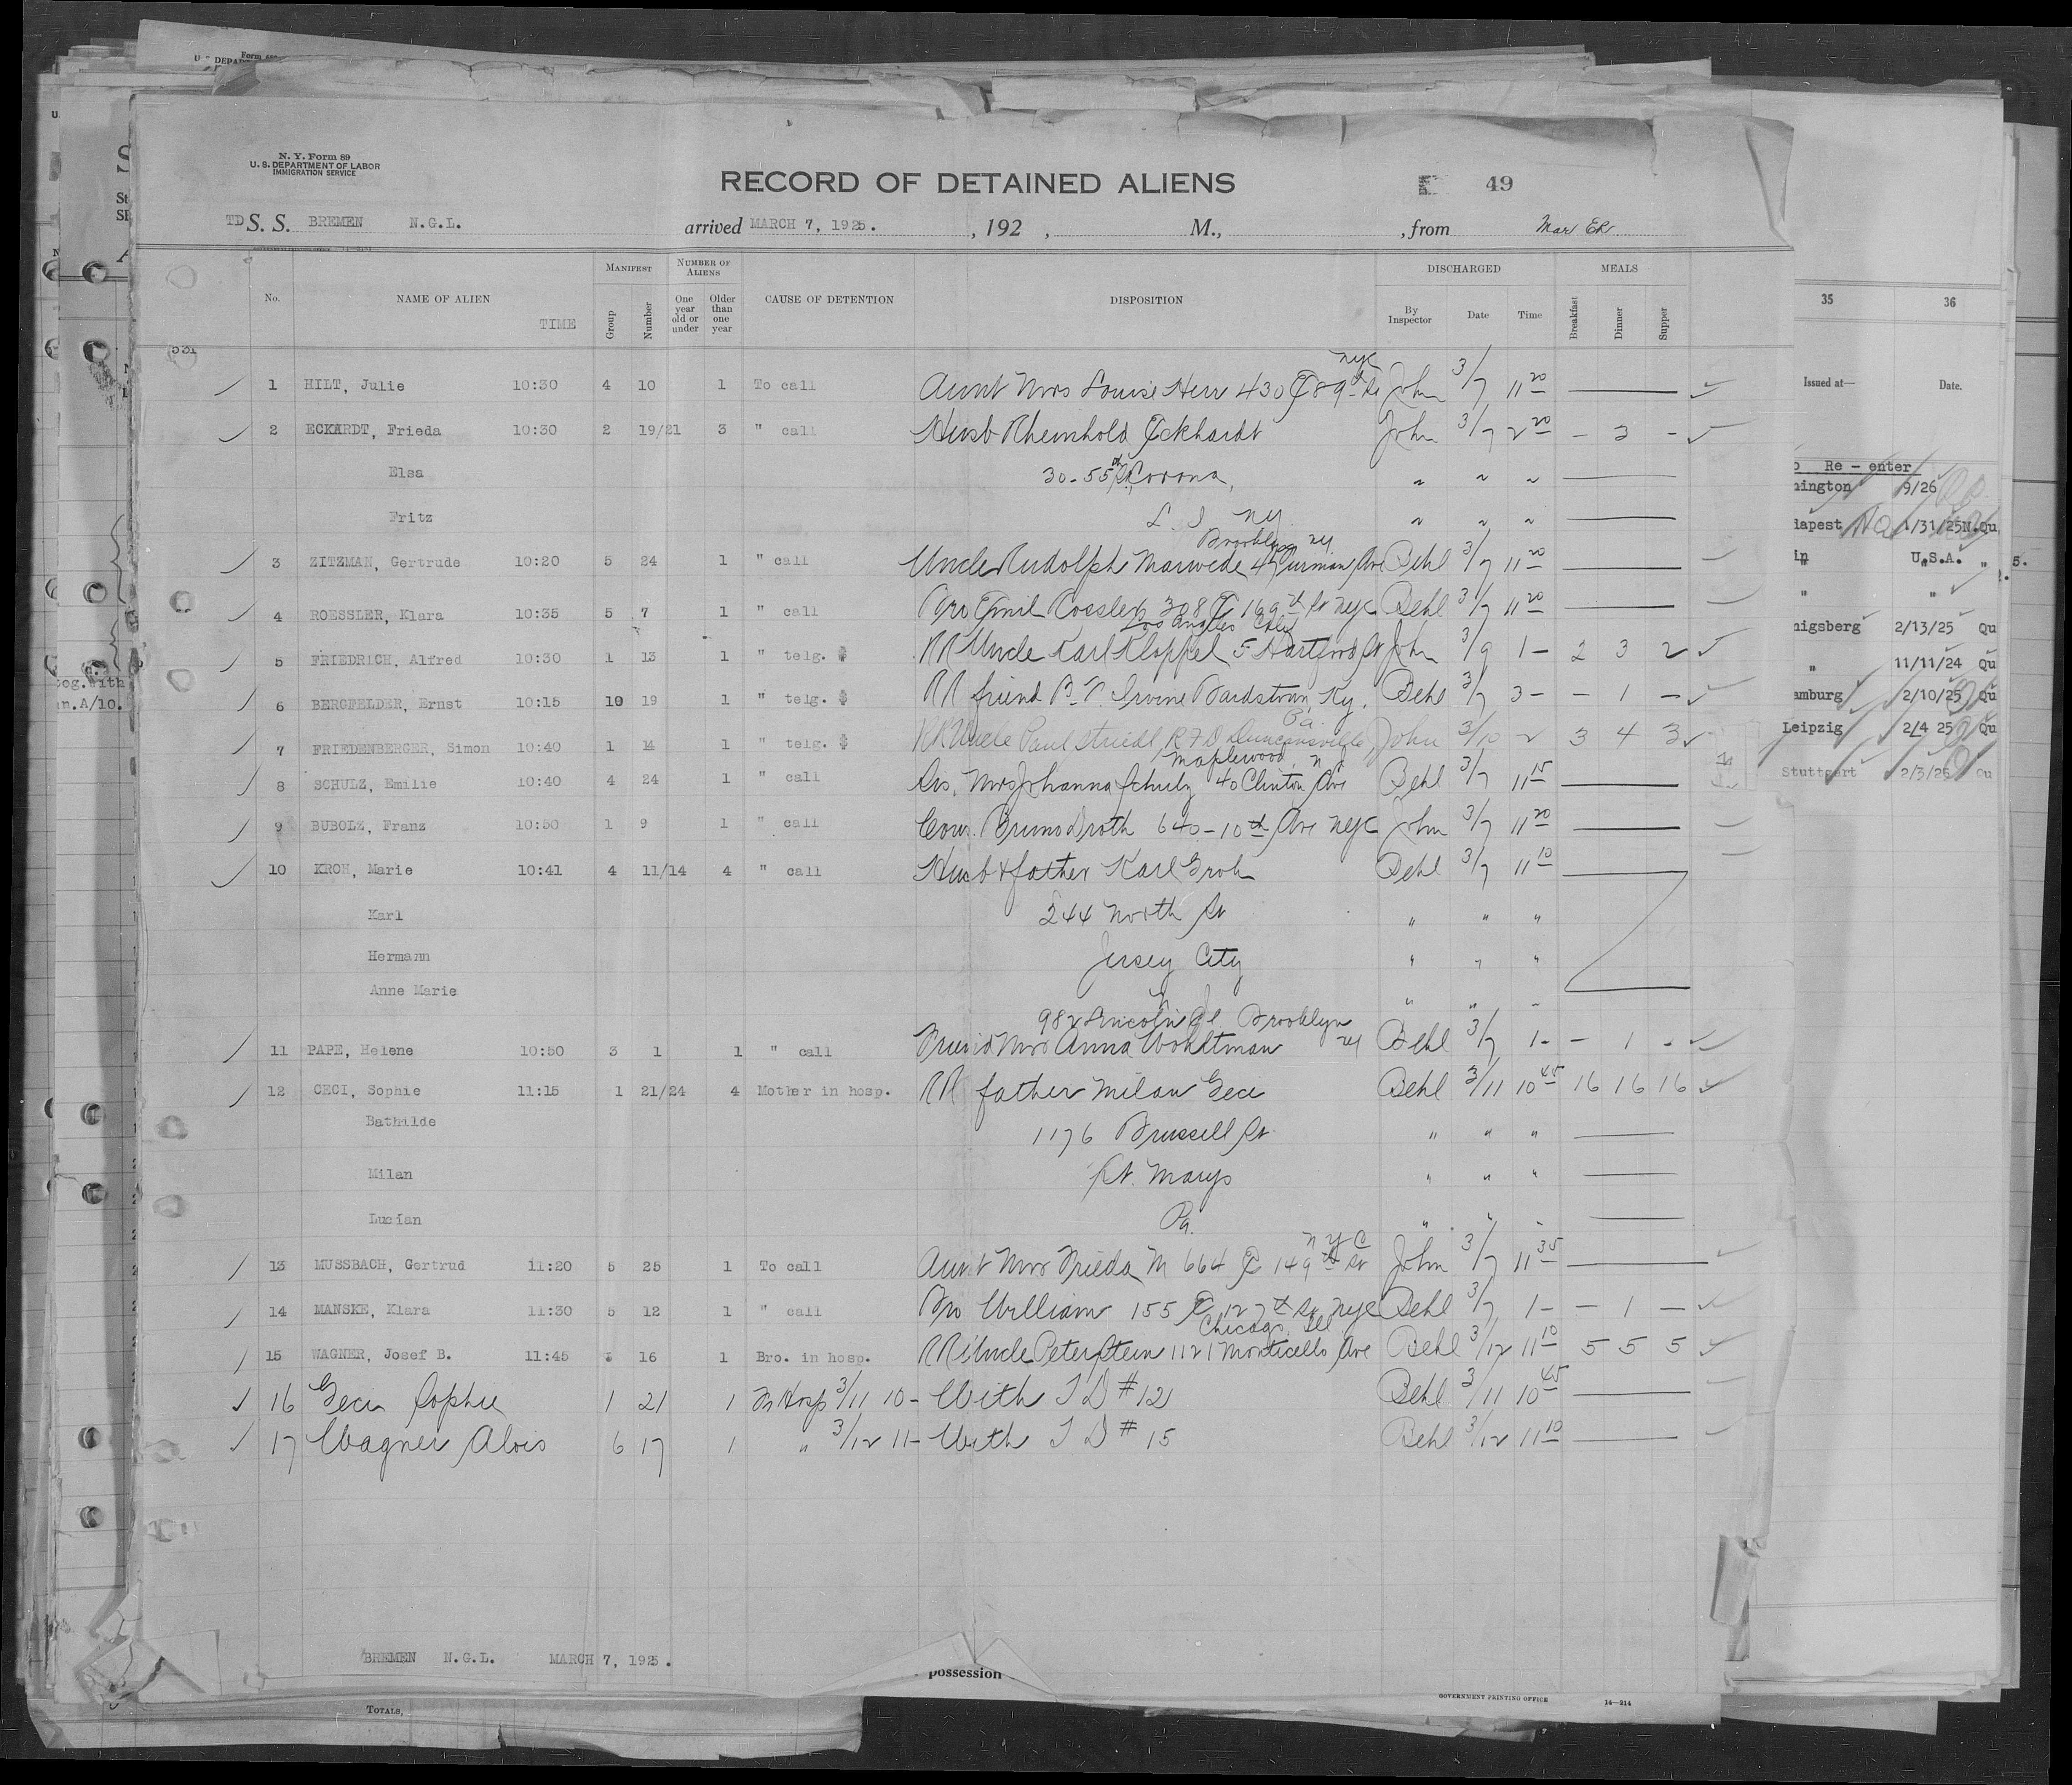 N. Y. Form 89
U. S. DEPARTMENT OF LABOR
IMMIGRATION SERVICE
RECORD OF DETAINED ALIENS
49
TD S. S. BREMEN N.G.L. arrived MARCH 7, 1925. , 192 , M., , from Mar ER
No. NAME OF ALIEN TIME MANIFEST Group Number NUMBER OF ALIENS One year old or under Older than one year CAUSE OF DETENTION DISPOSITION DISCHARGED By Inspector Date Time MEALS Breakfast Dinner Supper
531
nyc
1 HILT, Julie 10:30 4 10 1 To call Aunt Mrs Louise Herr 430 E 89th St John 3/7 11 20
2 ECKARDT, Frieda 10:30 2 19/21 3 " call Husb Rheinhold Eckhardt John 3/7 2 20 - 3 -
Elsa 30-55th Corona, " " "
Fritz L. I NY " " "
Brooklyn NY
3 ZITZMAN, Gertrude 10:20 5 24 1 " call Uncle Rudolph Marwede 47 Furman Ave Behl 3/7 11 20
4 ROESSLER, Klara 10:35 5 7 1 " call Bro Emil Rossler 308 E 169th St nyc Behl 3/7 11 20
Los Angeles Calif
5 FRIEDRICH, Alfred 10:30 1 13 1 " telg. $ RR Uncle Karl Kloppel 5 Hartford St John 3/9 1 - 2 3 2
6 BERGFELDER, Ernst 10:15 10 19 1 " telg. $ RR friend B. N. Irvine Bardstown, Ky. Behl 3/7 3 - - 1 -
Pa.
7 FRIEDENBERGER, Simon 10:40 1 14 1 " telg. $ RR Uncle Paul Striedl, RFD Duncansville, John 3/10 2 3 4 3
Maplewood, N J
8 SCHULZ, Emilie 10:40 4 24 1 " call Sis. Mrs Johanna Schulz 40 Clinton Ave Behl 3/7 11 15
9 BUBOLZ, Franz 10:50 1 9 1 " call Cous. Bruno Droth 640-10th Ave nyc John 3/7 11 20
10 KROH, Marie 10:41 4 11/14 4 " call Husb & father Karl Groh Behl 3/7 11 10
Karl 244 North St " " "
Hermann Jersey City " " "
Anne Marie " " "
982 Lincoln Pl Brooklyn
11 PAPE, Helene 10:50 3 1 1 " call Friend Mrs Anna Wohltman NY Behl 3/7 1 - - 1 -
12 CECI, Sophie 11:15 1 21/24 4 Mother in hosp. RR father Milan Geci Behl 3/11 10 45 16 16 16
Bathilde 1176 Brussell St " " "
Milan St. Marys " " "
Lucian Pa. " " "
N Y C
13 MUSSBACH, Gertrud 11:20 5 25 1 To call Aunt Mrs Frieda M 664 E 149th St John 3/7 11 35
14 MANSKE, Klara 11:30 5 12 1 " call Bro William 155 E 127th St, nyc Behl 3/7 1 - - 1 -
Chicago, Ill
15 WAGNER, Josef B. 11:45 16 1 Bro. in hosp. RR Uncle Peter Stein 1121 Monticello Ave Behl 3/12 11 10 5 5 5
16 Geci Sophie 1 21 1 In Hosp 3/11 10 - With T D # 12 Behl 3/11 10 45
17 Wagner Alois 6 17 1 " 3/12 11 - With T D # 15 Behl 3/12 11 10
BREMEN N.G.L. MARCH 7, 1925.
possession
GOVERNMENT PRINTING OFFICE 14-214
TOTALS,
35 36
Issued at— Date.
Re - enter
9/26
1/31/25 N.Qu
U.S.A. "
" "
2/13/25 Qu
" 11/11/24 Qu
2/10/25 Qu
Leipzig 2/4 25 Qu
Stuttgart 2/3/25 Qu